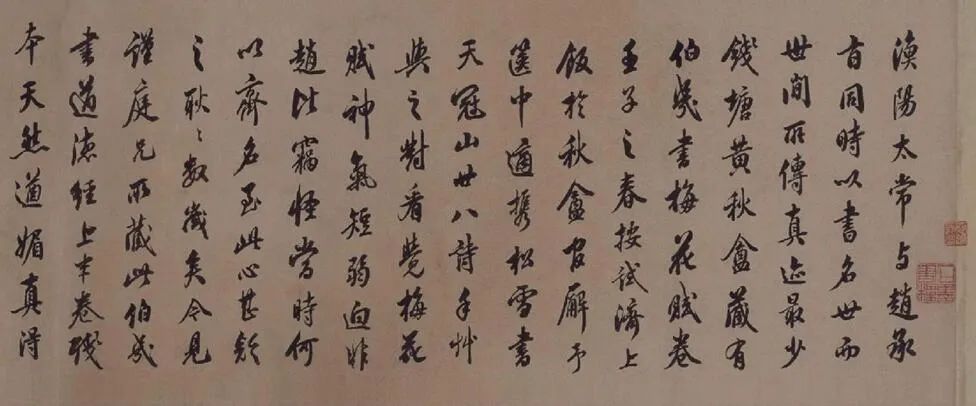 漁陽太常与趙承
旨同時以書名世而
世間所傳真迹最少
錢塘黃秋盦藏有
伯幾書梅花賦卷
壬子之春按試濟上
飯於秋盦官廨予
篋中適攜松雪書
天冠山廿八詩手艸
與之對看覺梅花
賦神氣短弱迥非
趙比竊怪當時何
以齊名至此心甚疑
之耿〻數歲矣今見
謹庭兄所藏此伯幾
書道德經上半卷殘
本天然遒媚真得